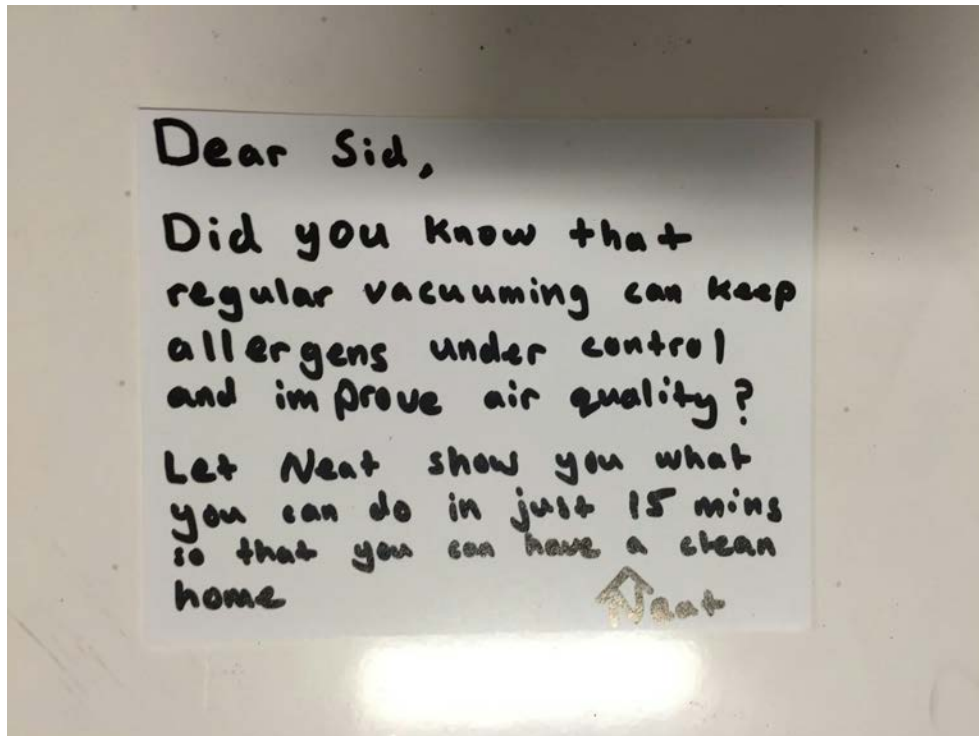 Dear Sid,
Did you know that
regular vacuuming can keep
allergens under control
and improve air quality?
Let Neat show you what
you can do in just 15 mins
so that you can have a clean
home
Neat